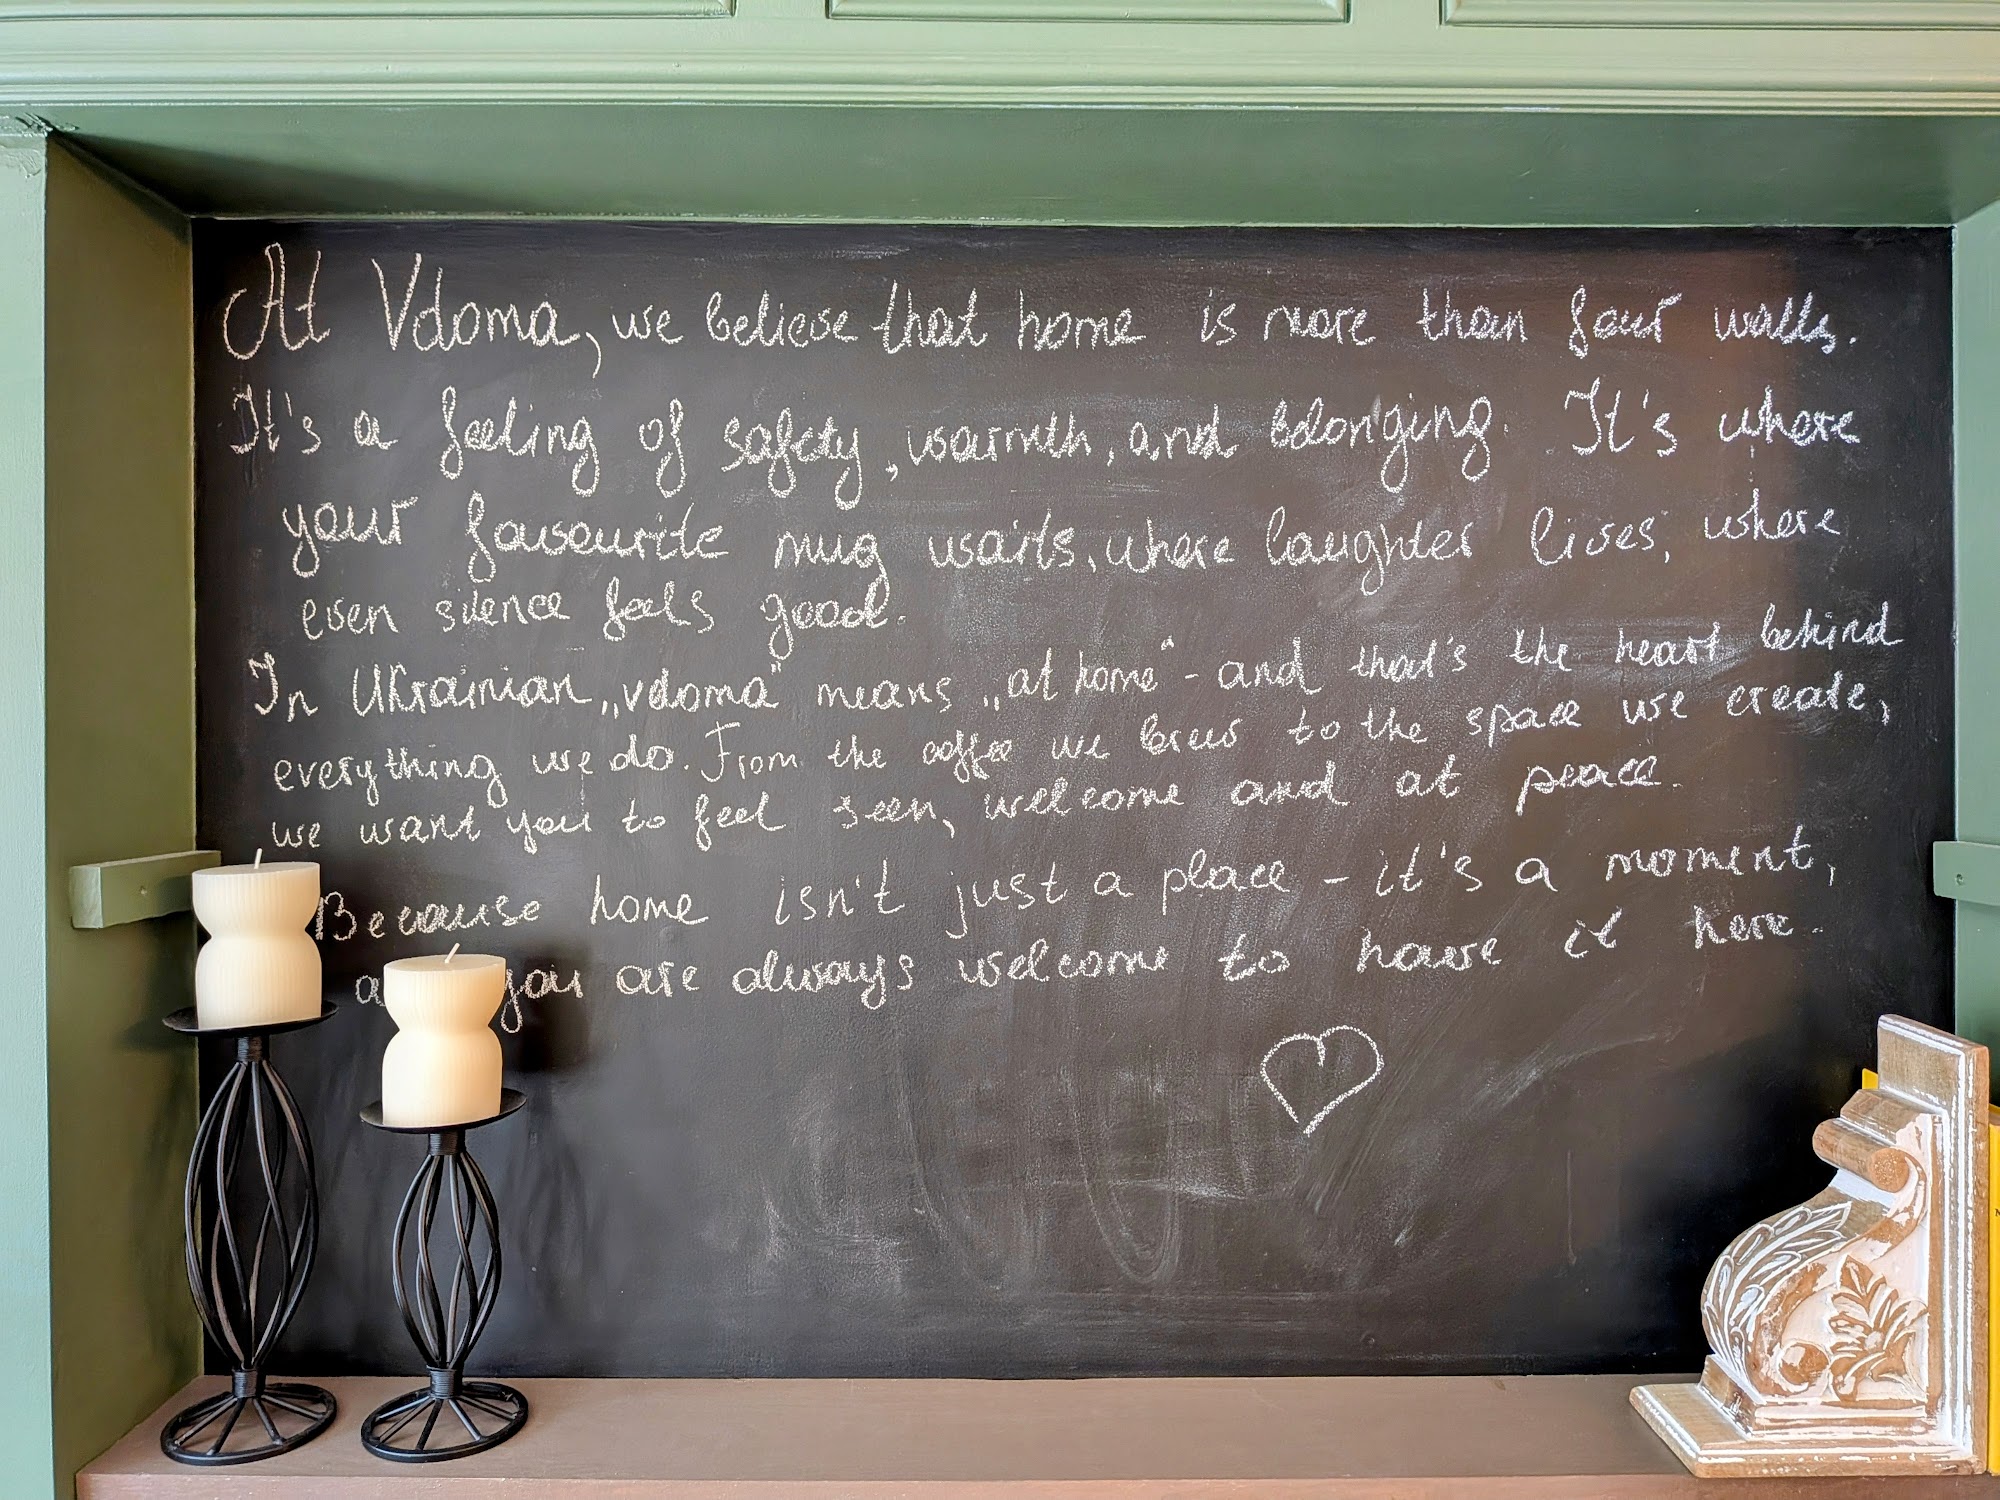 At Vdoma, we believe that home is more than four walls.
It's a feeling of safety, warmth, and belonging. It's where
your favourite mug waits, where laughter lives, where
even silence feels good.
In Ukrainian „vdoma“ means „at home“ - and that's the heart behind
everything we do. From the coffee we brew to the space we create,
we want you to feel seen, welcome and at peace.
Because home isn't just a place - it's a moment,
you are always welcome to have it here.